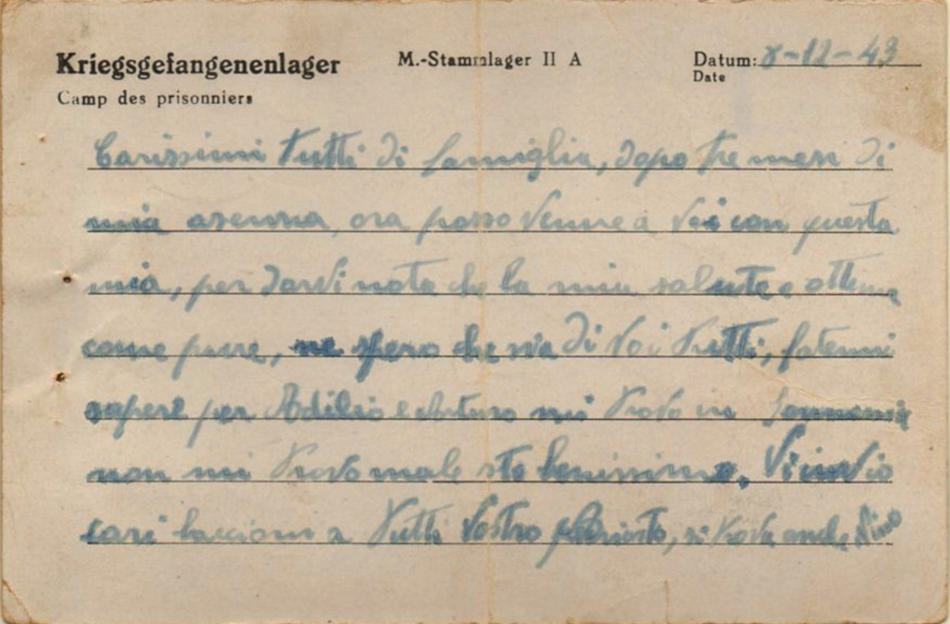 Kriegsgefangenenlager
M.-Stammlager II A
Datum: 8-12-43
Date
Camp des prisonniers
Carissimi tutti di famiglia, dopo tre mesi di
mia assenza, ora posso venire a Voi con questa
mia, per darvi nota che la mia salute e ottima
come pure, ne spero che sia di Voi tutti, fatemi
sapere per Adelio e Arturo mi trovo in Germania
non mi trovo male sto benissimo. Vi invio
cari baccioni a tutti Vostro si trova anche